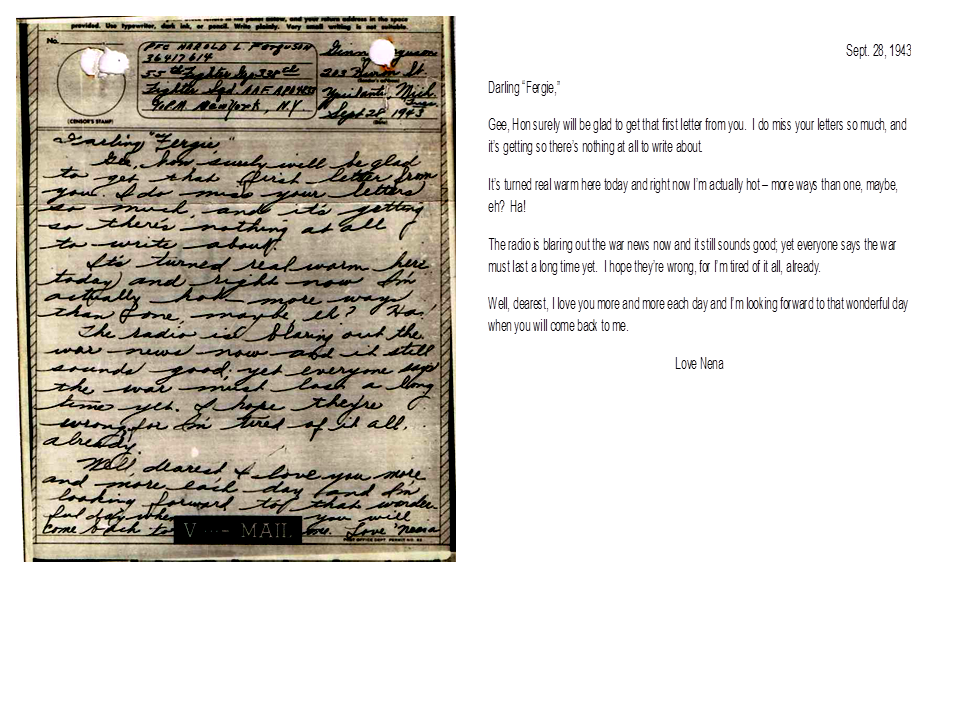 provided. Use typewriter, dark ink, or pencil. Write plainly. Very small writing is not suitable.
No.
(CENSOR'S STAMP)
PFC HAROLD L Ferguson
36417614
55th Fighter Gp. 338th
Fighter Sqd. AAF APO 4833
% P.M. New York, N.Y
203 Huron St.
Ypsilanti, Mich.
Sept 28 1943
Darling "Fergie,"
Gee, hon surely will be glad
to get that first letter from
you. I do miss your letters
so much, and it's getting
so there's nothing at all
to write about.
It's turned real warm here
today and right now I'm
actually hot – more ways
than one, maybe, eh? Ha!
The radio is blaring out the
war news now and it still
sounds good; yet everyone says
the war must last a long
time yet. I hope they're
wrong, for I'm tired of it all,
already.
Well, dearest I love you more
and more each day and I'm
looking forward to that wonder
ful day when you will
come back to me. Love Nena
V ···– MAIL
POST OFFICE DEPT PERMIT NO.
Sept. 28, 1943
Darling “Fergie,”
Gee, Hon surely will be glad to get that first letter from you. I do miss your letters so much, and
it’s getting so there’s nothing at all to write about.
It’s turned real warm here today and right now I’m actually hot – more ways than one, maybe,
eh? Ha!
The radio is blaring out the war news now and it still sounds good; yet everyone says the war
must last a long time yet. I hope they’re wrong, for I’m tired of it all, already.
Well, dearest, I love you more and more each day and I’m looking forward to that wonderful day
when you will come back to me.
Love Nena